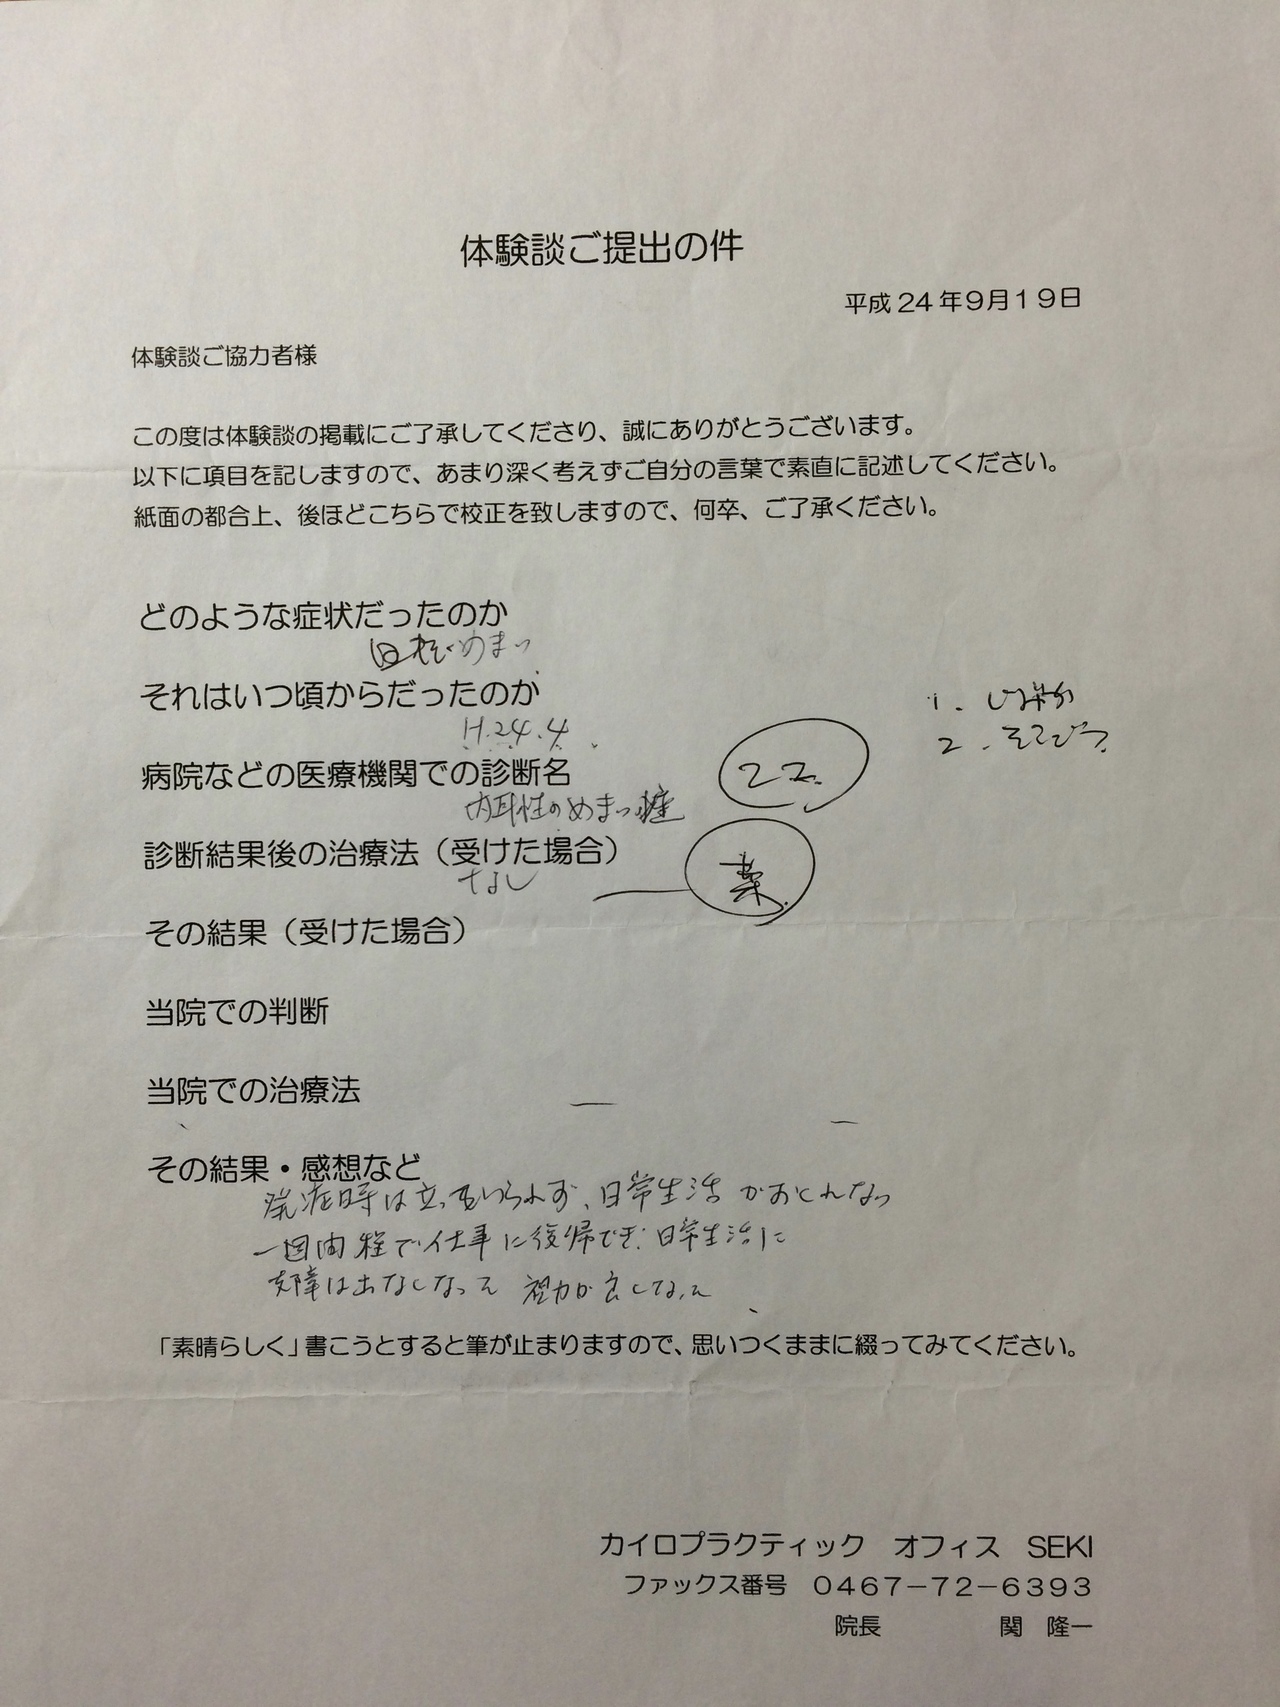 体験談ご提出の件
平成24年9月19日
体験談ご協力者様
この度は体験談の掲載にご了承してくださり、誠にありがとうございます。
以下に項目を記しますので、あまり深く考えずご自分の言葉で素直に記述してください。
紙面の都合上、後ほどこちらで校正を致しますので、何卒、ご了承ください。
どのような症状だったのか
めまい
それはいつ頃からだったのか
H.24.4
1.
2.
病院などの医療機関での診断名
内耳性のめまい症
診断結果後の治療法（受けた場合）
なし
薬
その結果（受けた場合）
当院での判断
当院での治療法
その結果・感想など
発症時は立っていられず、日常生活がおくれなかっ
一週間程で仕事に復帰でき 日常生活に
支障は出なくなった 視力が良くなった
「素晴らしく」書こうとすると筆が止まりますので、思いつくままに綴ってみてください。
カイロプラクティック オフィス SEKI
ファックス番号 0467-72-6393
院長 関 隆一